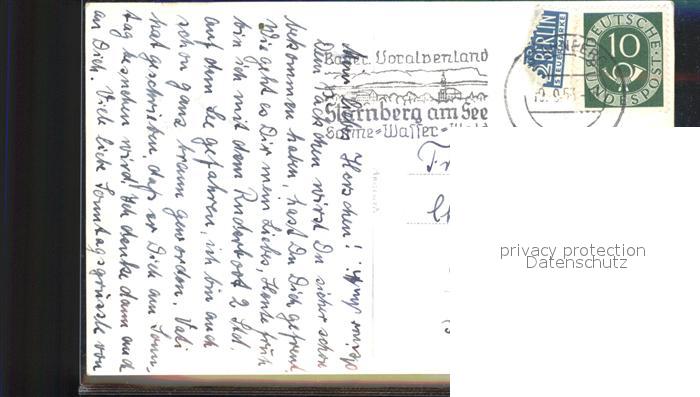 Bayer. Voralpenland
Starnberg am See
Sonne-Wasser-Wald
2 BERLIN
STEUERMARKE
DEUTSCHE
10
BUNDESPOST
9.53
Mein liebes Herzchen!
Dein Päckchen wirst Du sicher schon
bekommen haben, hast Du Dich gefreut.
Wie geht es Dir mein Liebes, Heute früh
bin ich mit dem Ruderboot 2 Std.
auf dem See gefahren, ich bin auch
schon ganz braun geworden. Vati
hat geschrieben, daß er Dich am Sonn-
tag besuchen wird. Ich denke dann auch
an Dich. Viele liebe Sonntagsgrüssle von
deiner Mutti.
privacy protection
Datenschutz